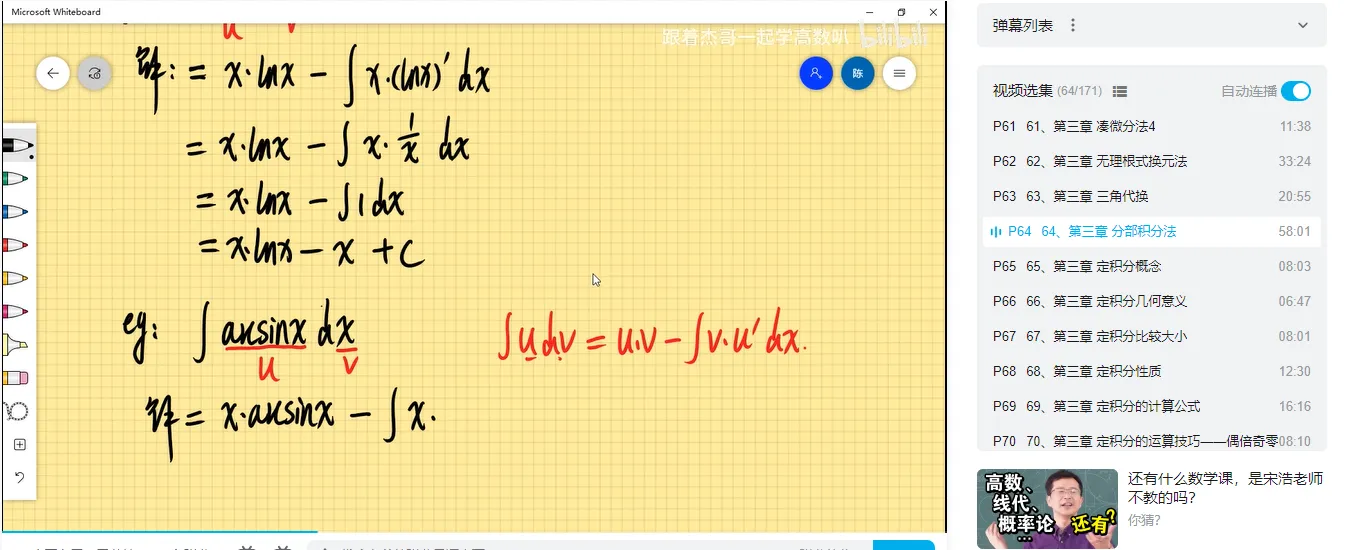 Microsoft Whiteboard
u v
跟着杰哥一起学高数叭 bilibili
解: = x·lnx - ∫ x·(lnx)' dx
陈
= x·lnx - ∫ x· 1/x dx
= x·lnx - ∫ 1 dx
= x·lnx - x + C
eg: ∫ arcsinx dx
u v
∫ u dv = u·v - ∫ v·u' dx.
解 = x·arcsinx - ∫ x·
弹幕列表
视频选集 (64/171) 自动连播
P61 61、第三章 凑微分法4 11:38
P62 62、第三章 无理根式换元法 33:24
P63 63、第三章 三角代换 20:55
P64 64、第三章 分部积分法 58:01
P65 65、第三章 定积分概念 08:03
P66 66、第三章 定积分几何意义 06:47
P67 67、第三章 定积分比较大小 08:01
P68 68、第三章 定积分性质 12:30
P69 69、第三章 定积分的计算公式 16:16
P70 70、第三章 定积分的运算技巧——偶倍奇零 08:10
高数、
线代、
概率论
...
还有?
还有什么数学课，是宋浩老师
不教的吗?
你猜?